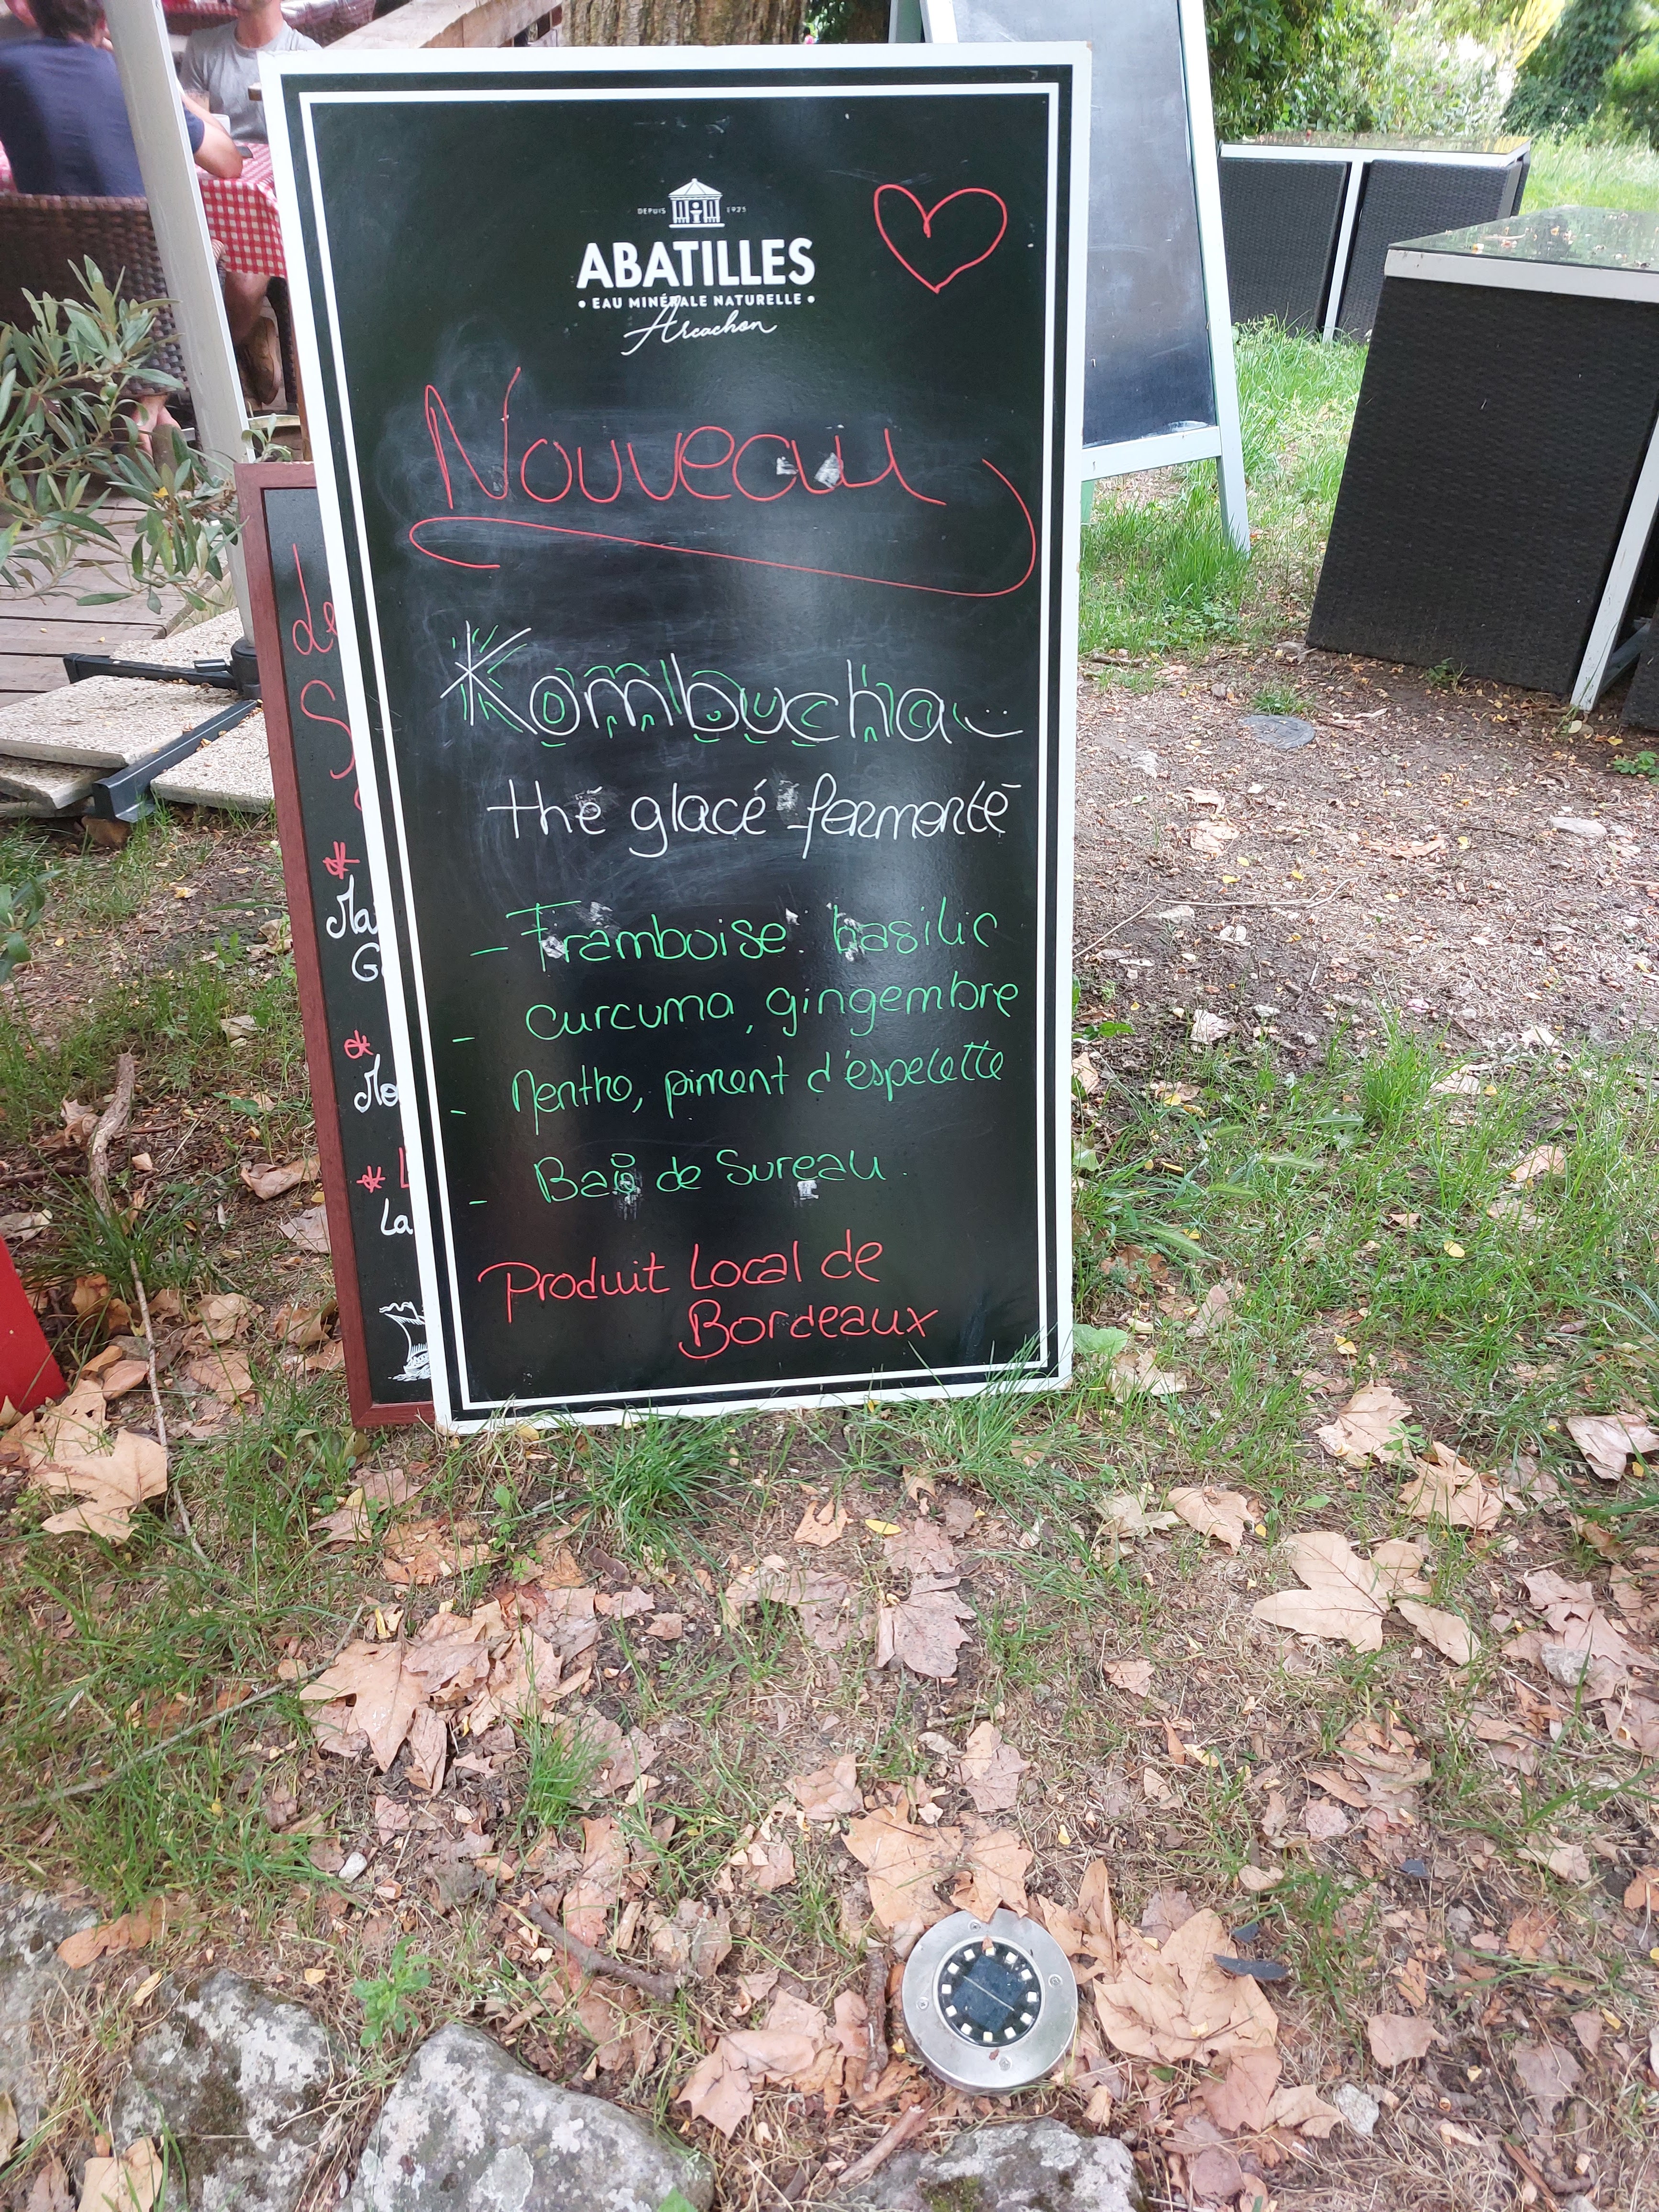 DEPUIS 1925
ABATILLES
• EAU MINÉRALE NATURELLE •
Arcachon
Nouveau
Kombucha
thé glacé fermenté
- Framboise basilic
- curcuma, gingembre
- Menthe, piment d'espelette
- Baie de Sureau
Produit Local de
Bordeaux
*
*
*
La